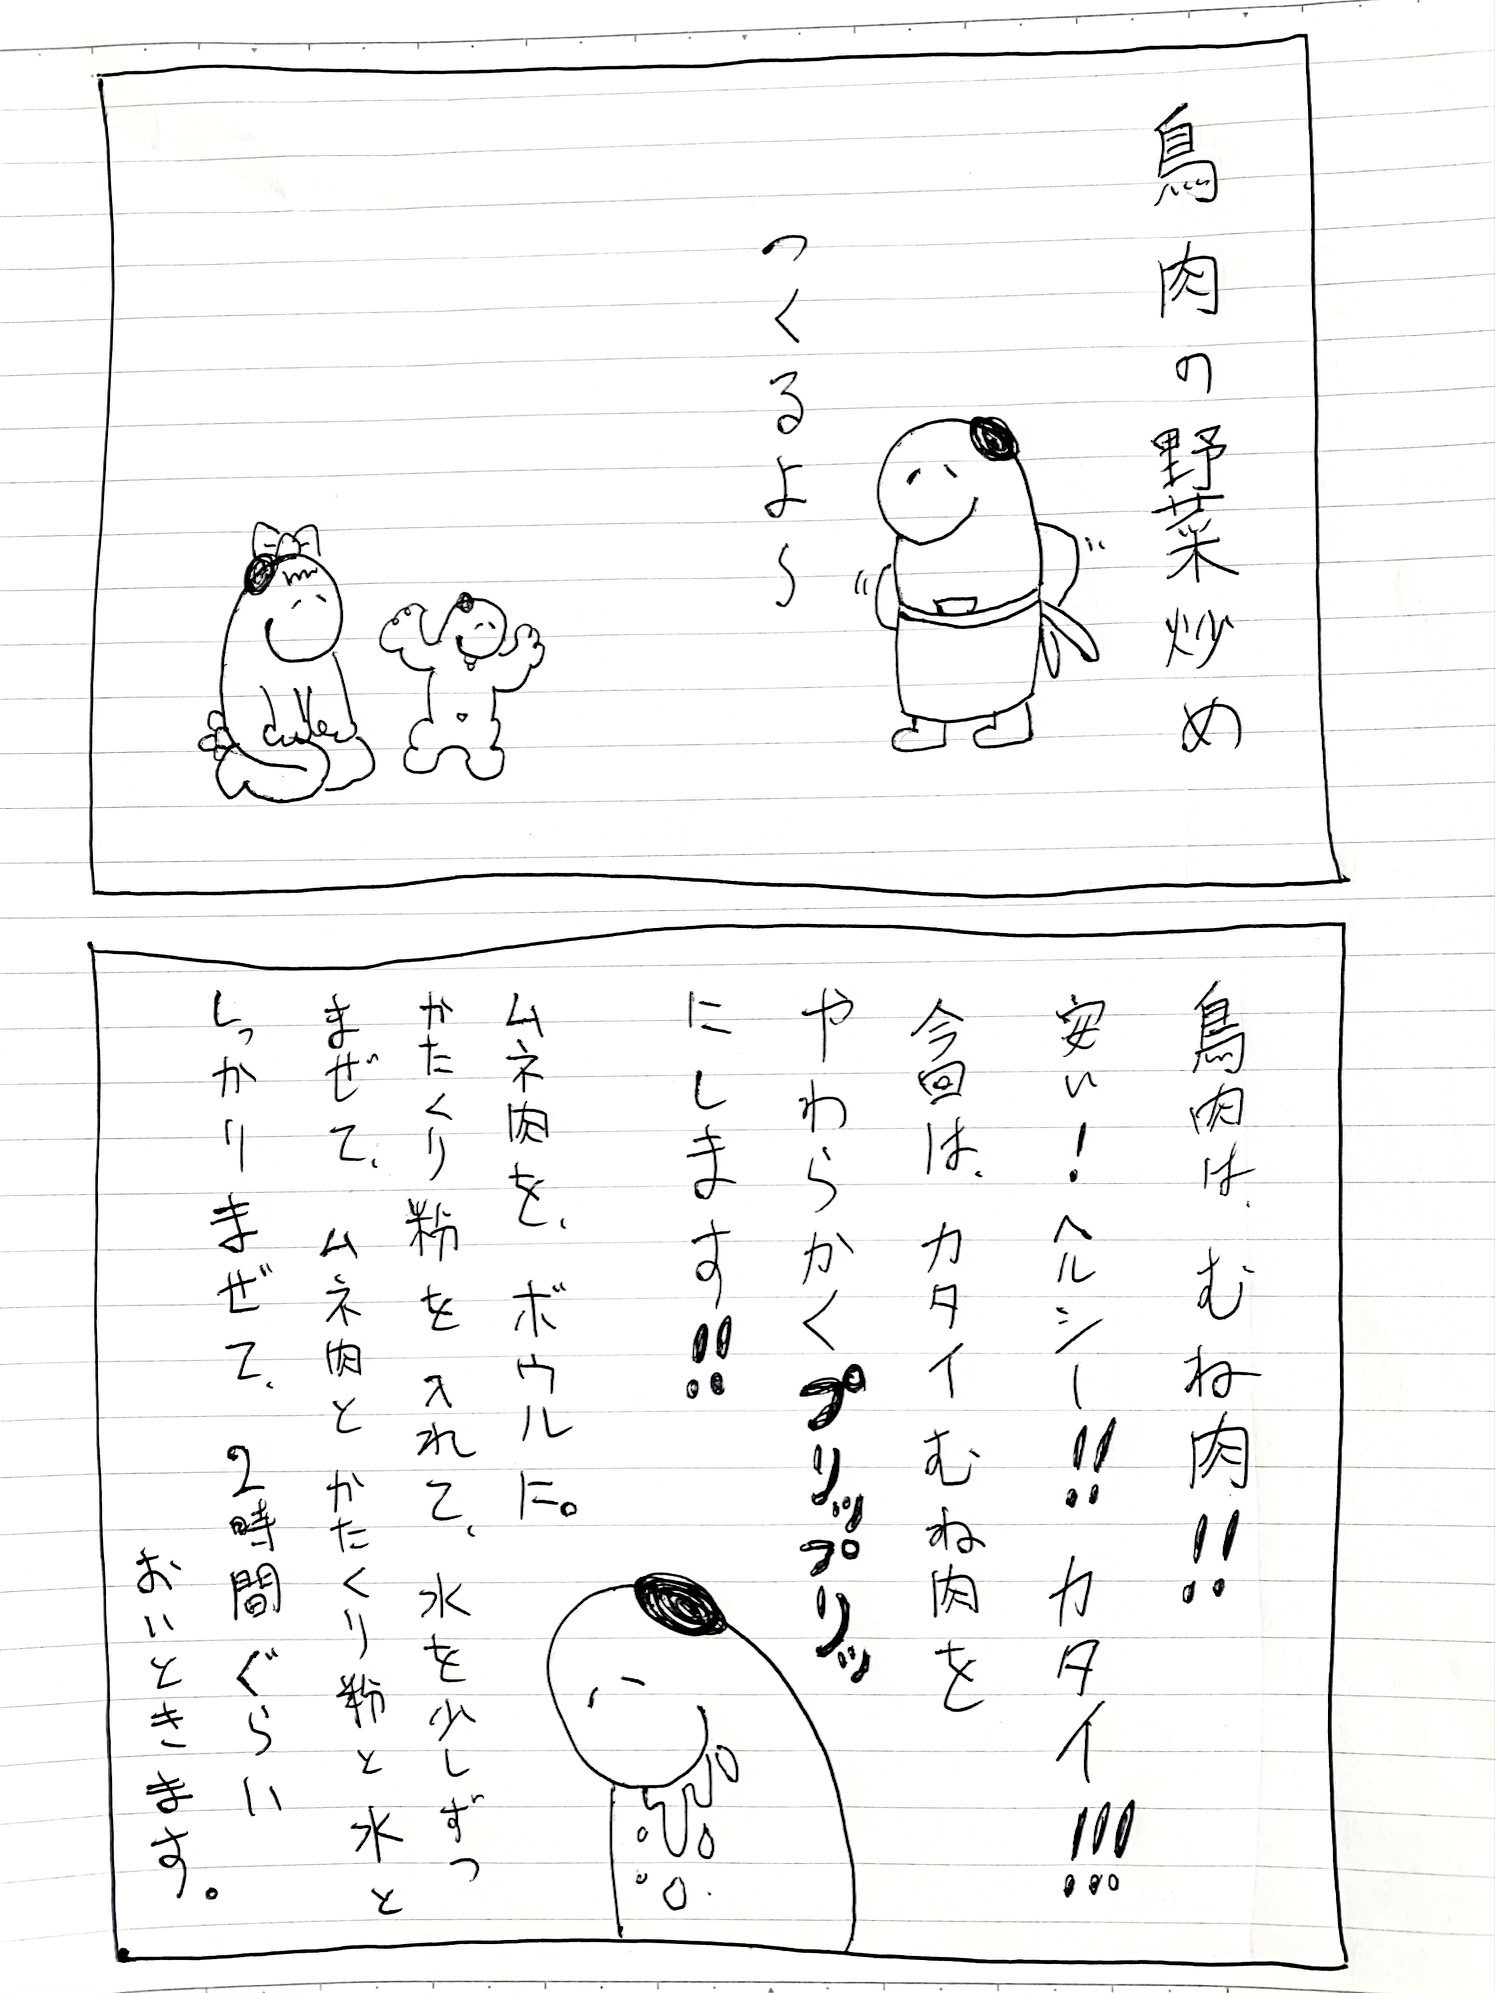 鳥肉の野菜炒め
つくるよ〜
鳥肉は、むね肉!!
安い!ヘルシー!!カタイ!!!
今回は、カタイむね肉を
やわらかくプリップリッ
にします!!
ムネ肉を、ボウルに。
かたくり粉を入れて、水を少しずつ
まぜて、ムネ肉とかたくり粉と水と
しっかりまぜて、2時間ぐらい
おいときます。